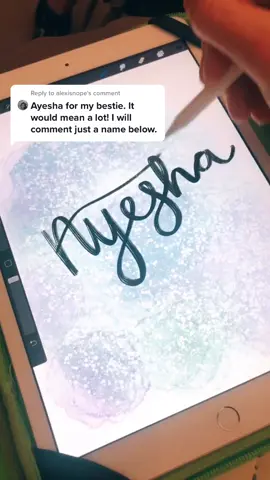 Reply to alexisnope's comment
Ayesha for my bestie. It
would mean a lot! I will
comment just a name below.
Ayesha